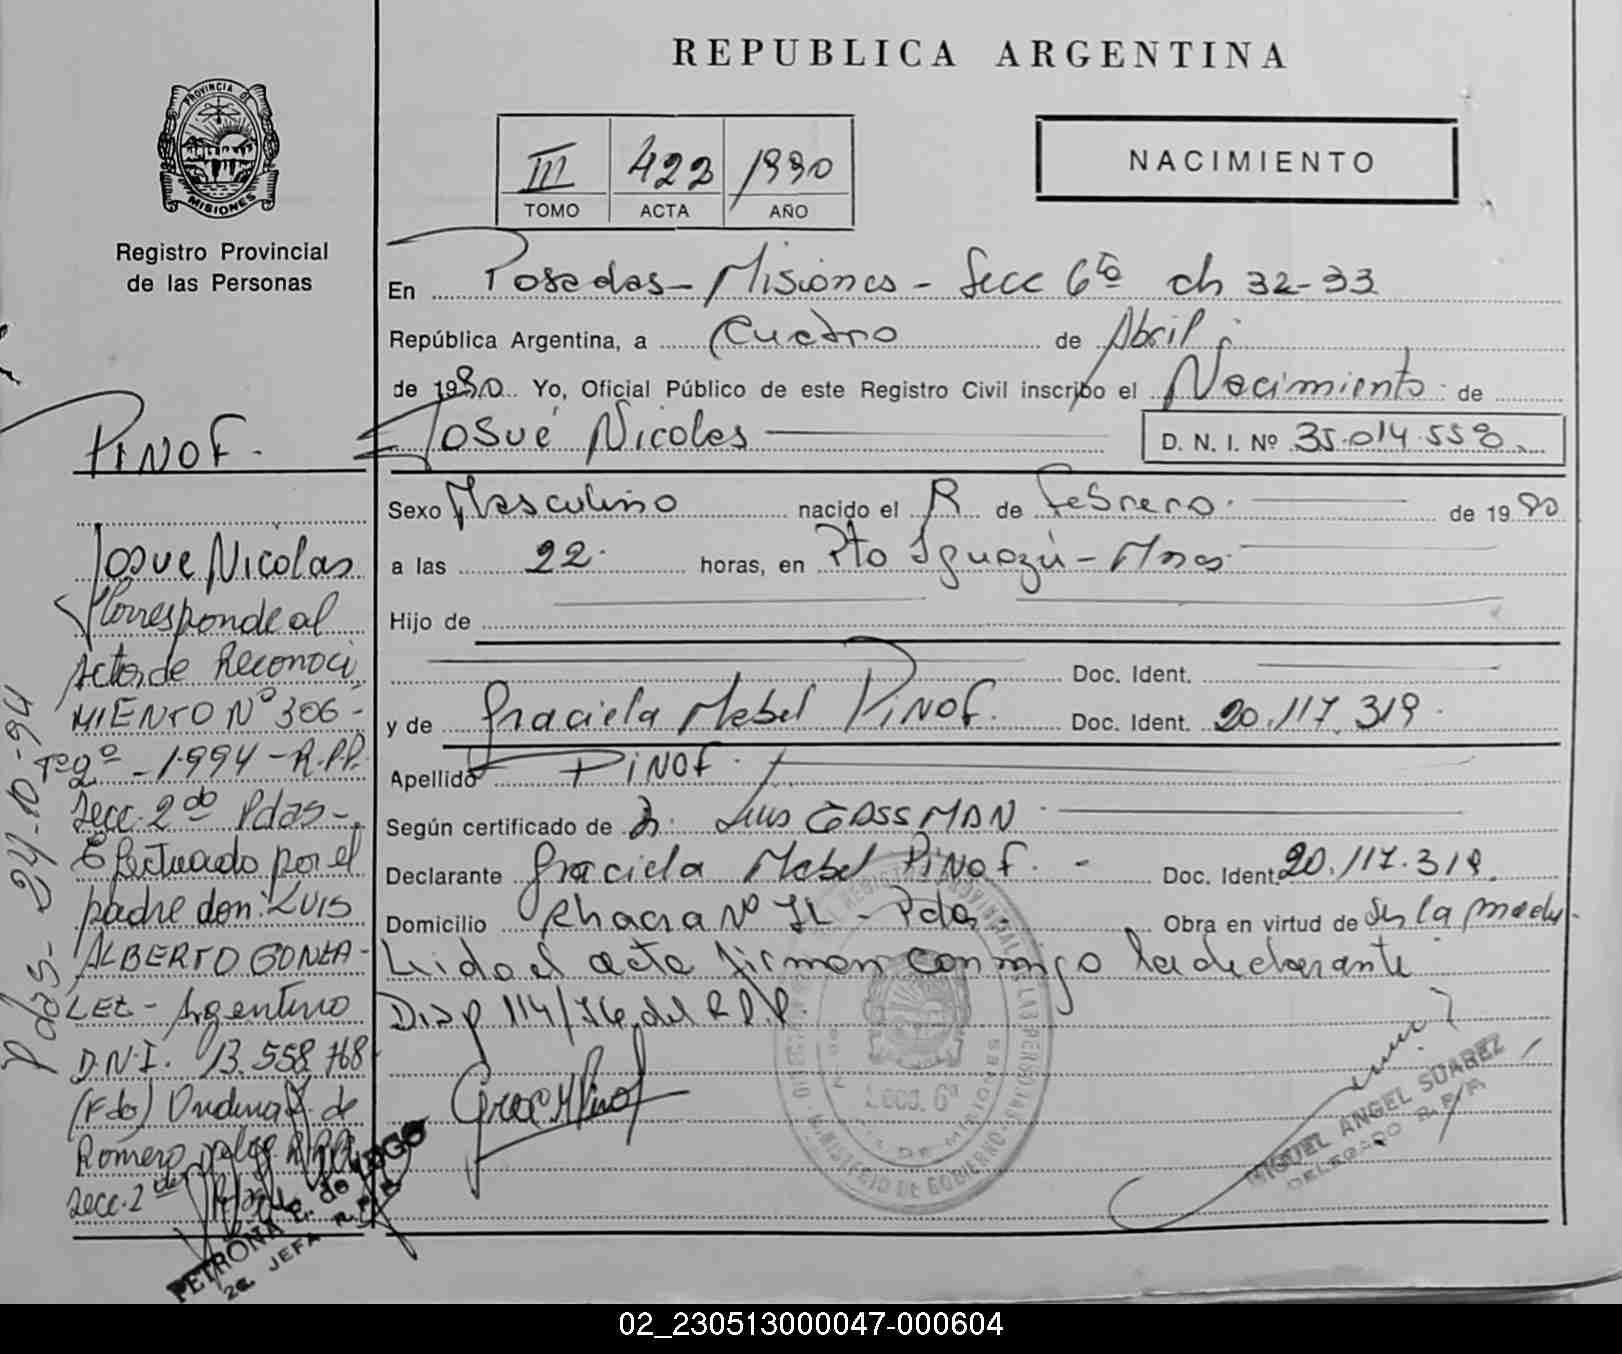 REPUBLICA ARGENTINA
PROVINCIA DE
MISIONES
Registro Provincial
de las Personas
III 422 1990
TOMO ACTA AÑO
NACIMIENTO
En Posadas - Misiones - Secc 6ta ch 32-33
República Argentina, a Cuatro de Abril
de 1990. Yo, Oficial Público de este Registro Civil inscribo el Nacimiento de
Josué Nicolas D. N. I. Nº 35.014.559
Sexo Masculino nacido el de Febrero de 1990
a las 22 horas, en Pto Iguazú - Mnes
Hijo de
Doc. Ident.
y de Graciela Mabel PINOF. Doc. Ident. 20.117.319
Apellido PINOF.
Según certificado de Dr. Luis GASSMAN
Declarante Graciela Mabel PINOF. Doc. Ident. 20.117.319
Domicilio Chacra Nº - Pdas. Obra en virtud de Ser la madre
Leido el acta firman conmigo la declarante
Disp 114/76 del R.P.P.
PINOF.
Josue Nicolas
Corresponde al
Acta de Reconoci
MIENTO Nº 306 -
Tº 2º - 1994 - R.P.P.
Secc. 2da Pdas -
Efectuado por el
padre don: LUIS
ALBERTO GONZA-
LEZ - Argentino
D.N.I. 13.558.768
(Fdo) de
Romero R.P.P.
Secc. 2da
Pdas - 24-10-94
PETRONA E. de LUGO
2a. JEFA R.P.P.
REGISTRO PROVINCIAL DE LAS PERSONAS
SECC. 6ª
MINISTERIO DE GOBIERNO
MIGUEL ANGEL SUAREZ
DELEGADO R.P.P.
02_230513000047-000604